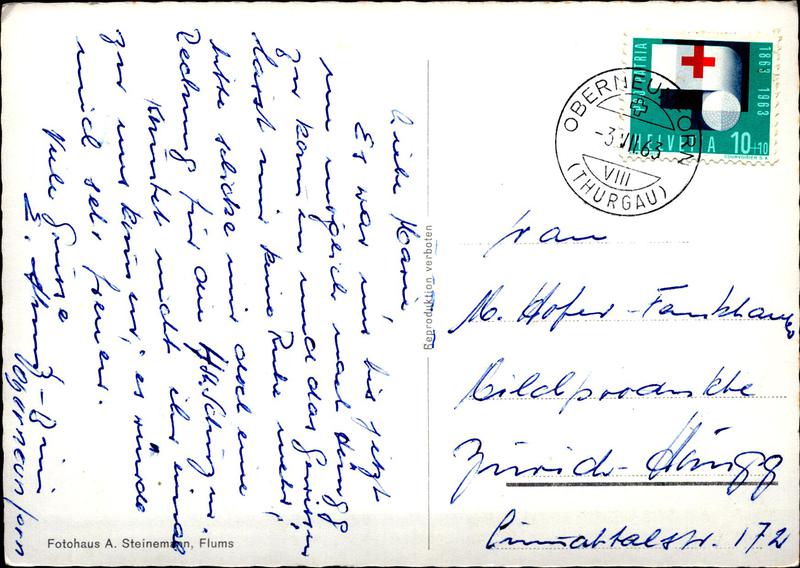 Liebe Marie
Es war mir bis jetzt
nie möglich nach Höngg
zu kommen und das Gewissen
lässt mir keine Ruhe mehr,
bitte schicke mir doch eine
Rechnung für die Schürzen.
Könntet nicht ihr einmal
zu uns kommen, es würde
mich sehr freuen.
Viele Grüsse
Oberneunforn
Fotohaus A. Steinemann, Flums
Reproduktion verboten
PRO PATRIA
1863 1963
HELVETIA 10+10
COURVOISIER S.A.
OBERNEUNFORN
-3.VII.63
VIII
(THURGAU)
Frau
M. Hofer-Fankhauser
Milchprodukte
Zürich-Höngg
Limmattalstr. 172